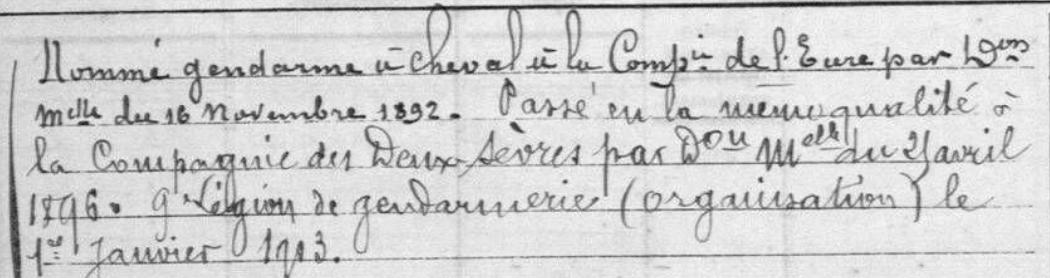 Nommé gendarme à cheval à la Compie de l'Eure par Don
melle du 16 Novembre 1892. Passé en la même qualité à
la Compagnie des Deux-Sèvres par Don Melle du avril
1896. 9e Légion de gendarmerie (organisation) le
1er Janvier 1913.